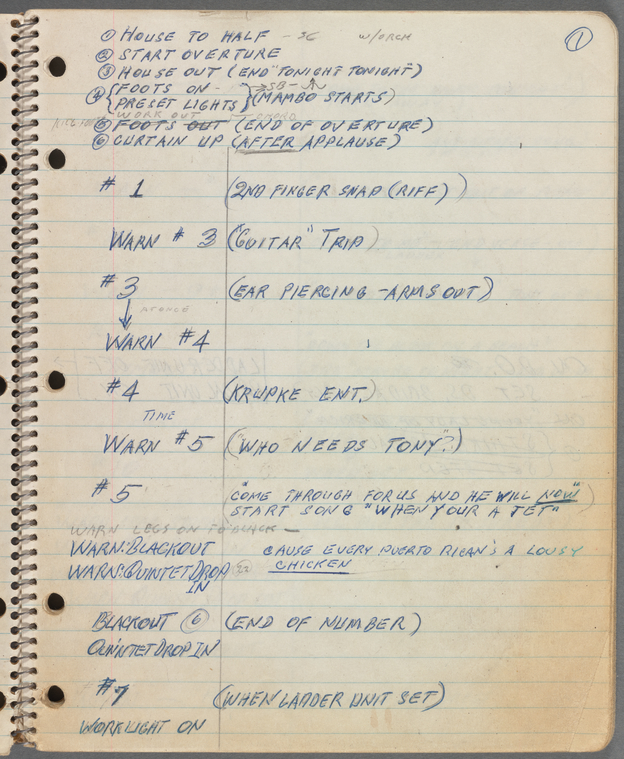 ① HOUSE TO HALF - 36 W/ORCH ①
② START OVERTURE
③ HOUSE OUT (END "TONIGHT TONIGHT")
④ { FOOTS ON -
PRESET LIGHTS } (MAMBO STARTS)
WORK OUT
⑤ FOOTS OUT (END OF OVERTURE)
⑥ CURTAIN UP (AFTER APPLAUSE)
# 1 (2ND FINGER SNAP (RIFF))
WARN # 3 ("GUITAR" TRIP)
# 3 (EAR PIERCING - ARMS OUT)
AT ONCE
WARN #4
#4 (KRUPKE ENT.)
TIME
WARN #5 ("WHO NEEDS TONY?")
#5 "COME THROUGH FOR US AND HE WILL NOW")
START SONG "WHEN YOUR A JET"
WARN LEGS ON TO BLACK —
WARN:BLACKOUT CAUSE EVERY PUERTO RICAN'S A LOUSY
WARN:QUINTET DROP CHICKEN
IN
BLACKOUT ⑥ (END OF NUMBER)
QUINTET DROP IN
#7 (WHEN LADDER UNIT SET)
WORKLIGHT ON